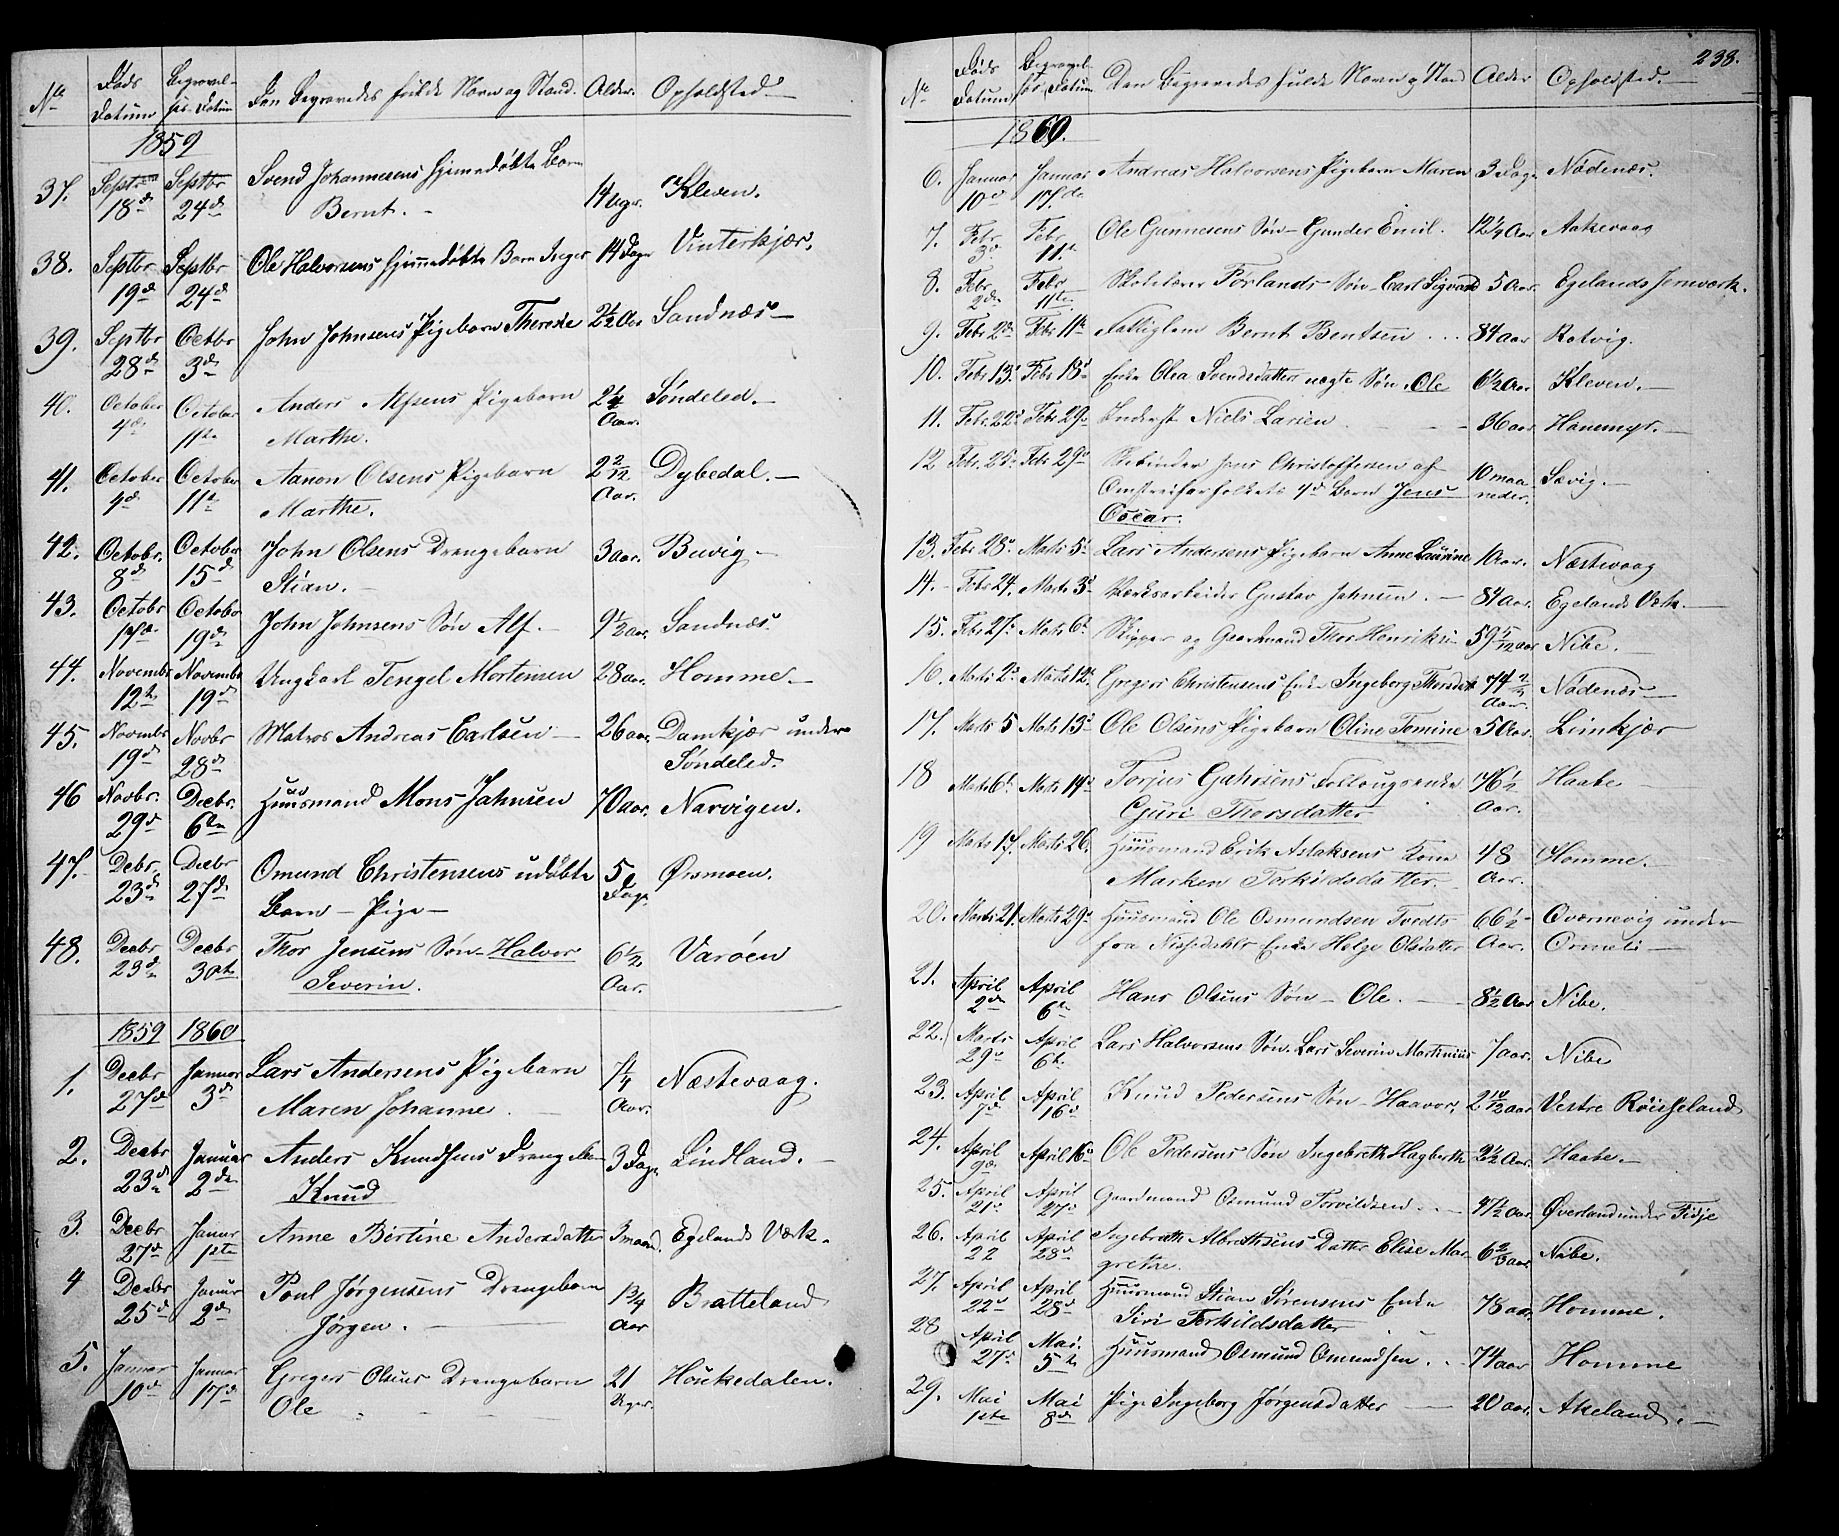 No Døds Datum Begravelses-Datum Den Begravedes fulde Navn og Stand. Alder. Opholdsted.
1859
37. Septbr 18de Septbr 24de Svend Johannesens hjemmedøbte Barn
Bernt. 14 Uger. Kleven.
38. Septbr 19de Septbr 24de Ole Halvorsens hjemmedøbte Barn Inger 14 Dage Vinterkjær.
39. Septbr 28de Octbr 3de John Johnsens Pigebarn Therese 2 1/2 Aar Sandnæs
40. October 4de October 11te Anders Alfsens Pigebarn
Marthe. 2 1/4 Aar. Søndeled.
41. October 4de October 11te Aanon Olsens Pigebarn
Marthe. 2 2/12 Aar. Dybedal.
42. Octobr. 8de October 15de John Olsens Drengebarn
Stian. 3 aar. Buvig
43. Octobr 17de Octobr 19de John Johnsens Søn Alf. 9 1/2 aar. Sandnæs
44. Novembr 12te Novembr 19de Ungkarl Tengel Mortensen 28 aar. Homme.
45. Novembr 19de Novbr 28de Matros Andreas Carlsen 26 aar. Damkjær under
Søndeled.
46 Novbr. 29de Decbr. 6te Huusmand Mons Jahnsen 70 aar. Narvigen.
47. Decbr. 23de Decbr 27de Omund Christensens udøbte
Barn - Pige - 5 Dage Ørsmoen.
48. Decbr 23de Decbr 30te Thor Jensens Søn Halvor
Severin. 6 1/2 Aar. Varøen
1859 1860
1. Decbr 27de Januar 3de Lars Andersens Pigebarn
Maren Johanne. 7 1/4 Aar. Næstevaag.
2. Decbr 23de Januar 2den Anders Knudsens Drengebarn
Knud 3 Dage Lindland.
3. Decbr 27de Januar 1ste Anne Bertine Andersdatter 3 maand. Egelands Værk.
4 Decbr 25de Januar 2de Poul Jørgensens Drengebarn
Jørgen. 1 3/4 Aar Bratteland
5. Januar 10de Januar 17de Gregers Olsens Drengebarn
Ole 21 Uger. Houkedalen.
238.
No Døds Datum Begravelses Datum Den Begravedes fulde Navn og Stand Alder Opholdsted.
1860.
6. Januar 10de Januar 17de Andreas Halvorsens Pigebarn Maren 3 Dage Nødenæs.
7. Febr. 3de Febr 11te Ole Gunnesens Søn Gunder Emil. 12 1/4 Aar Aakevaag
8. Febr 2den Febr 11te Skolelærer Førlands Søn Carl Sigvard 5 Aar. Egelands Jernværk.
9. Febr 2de Febr 11te Fattiglem Bernt Bentsen 84 aar Rotvig.
10. Febr 13de Febr 18de Enke Olea Svendsdatters uægte Søn Ole 6 1/2 Aar Kleven.
11. Febr. 22de Febr 29de Inderst Niels Larsen 86 aar. Hanemyr.
12 Febr. 25de Febr 29de Jens Christoffersen af
Omstreiferfolkets Barn Jens
Oscar. 10 maaneder. Sævig.
13. Febr 28de Marts 5te Lars Andersens Pigebarn Anne Laurine 1 Aar. Næstevaag
14. Febr 24. Marts 3de Værksarbeider Gustav Jahnsen. 84 Aar. Egelands Værk.
15. Febr 27de Marts 6te Skipper og Gaardmand Thor Henriksen 59 5/12 aar Nibe.
16. Marts 2de Marts 12te Gregers Christensens Enke Ingeborg Thorsdatter 74 Aar. Nødenæs
17. Marts 5 Marts 13de Ole Olsens Pigebarn Oline Tomine 5 Aar. Limkjær
18 Marts 6te Marts 14de Torjus Gjahrsens Enke
Guri Thorsdatter 76 1/2 Aar. Haabe
19 Marts 17. Marts 26. Huusmand Erik Aslaksens Kone
Marken Torkildsdatter. 48 Aar. Homme.
20. Marts 21. Marts 29de Huusmand Ole Osmundsen Tvedts
fra Nissedahls Enke Helge Olsdatter 66 1/2 Aar. Qværnevig under
Ormeli
21. April 2den April 6te Hans Olsens Søn - Ole. 8 1/2 Aar Nibe.
22. Marts 29de April 6te Lars Halvorsens Søn Lars Severin Martinius 7 aar. Nibe
23. April 7de April 16de Knud Pedersens Søn Haavor, 2 10/12 aar Vestre Røisseland
24. April 9de April 16de Ole Pedersens Søn Ingebreth Hagbarth 2 1/2 Aar. Haabe.
25. April 21de April 27de Gaardmand Osmund Torvildsen. 47 1/2 aar. Øverland under Fidje
26. April 22 April 28de Ingebreth Albrethsens Datter Elise Mar-
grethe. 6 2/3 aar. Nibe.
27. April 22de April 28de Huusmand Stian Sørensens Enke
Siri Torkildsdatter 78 aar. Homme.
28 April 27de Mai. 5te Huusmand Osmund Omundsen. 74 aar Homme
29. Mai 1ste Mai 8de Pige Ingeborg Jørgensdatter 20 aar. Akeland.